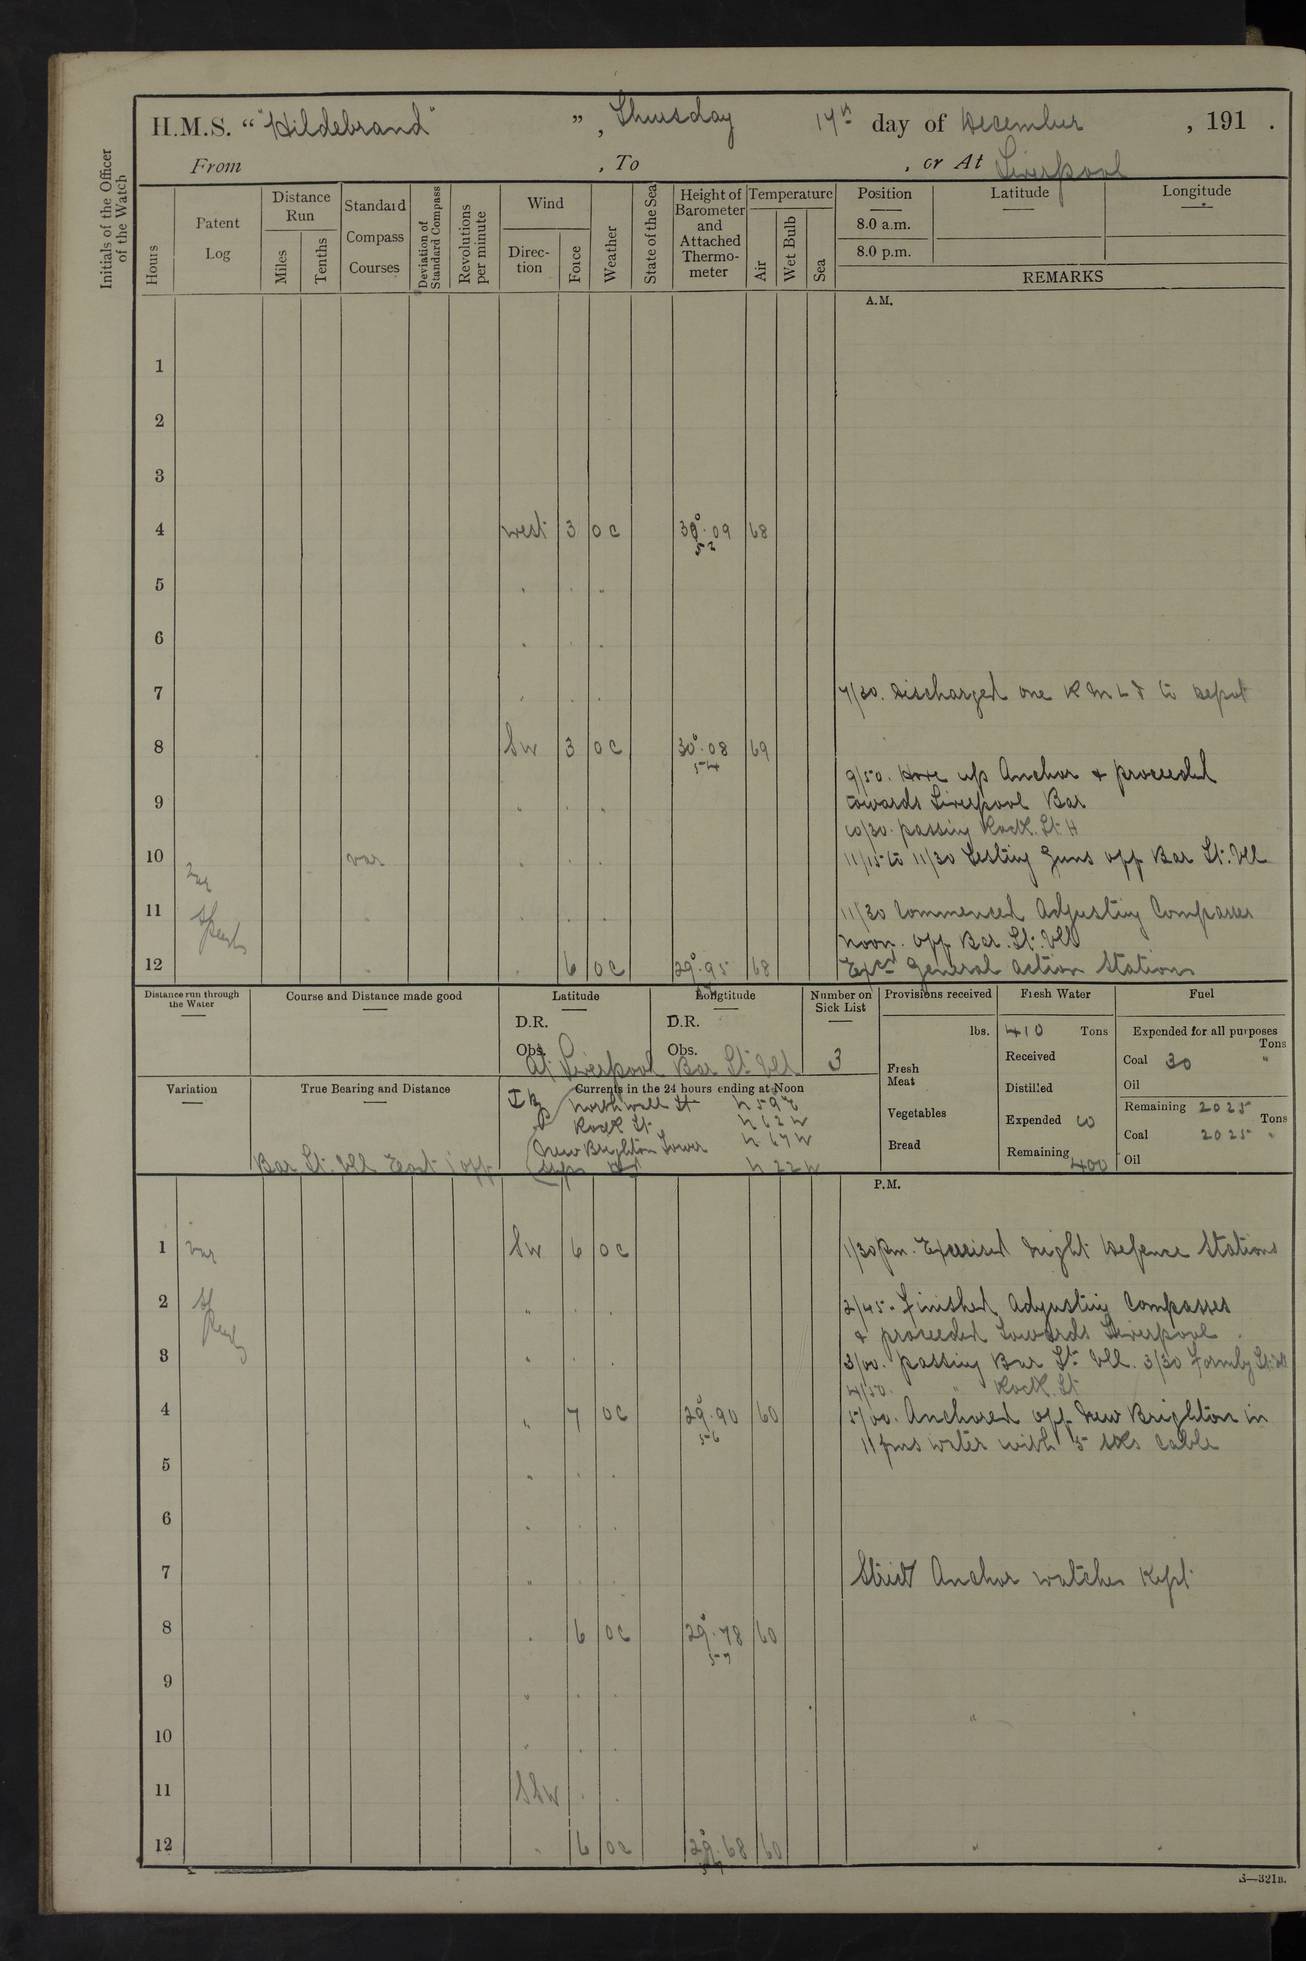 H.M.S. “ "Hildebrand" ” , Thursday 17th day of December , 191 .
From , To , or At Liverpool
Initials of the Officer of the Watch
Hours
Patent Log
Distance Run
Miles
Tenths
Standard Compass Courses
Deviation of Standard Compass
Revolutions per minute
Wind
Direc-tion
Force
Weather
State of the Sea
Height of Barometer and Attached Thermo-meter
Temperature
Air
Wet Bulb
Sea
Position
8.0 a.m.
8.0 p.m.
Latitude
Longitude
REMARKS
A.M.
1
2
3
4 West 3 o c 30.09 52 68
5
6
7 7/30. Discharged one R M L I to Depot
8 SW 3 o c 30.08 54 69
9/50. Hove up Anchor & proceeded
9 towards Liverpool Bar
10/30. passing Rock. Lt H
10 var 11/15 to 11/30 Testing Guns off Bar Lt. Vll
var
11 11/30 Commenced Adjusting Compasses
Noon. off Bar. Lt. Vll
12 6 o c 29.95 68 Excd General Action Stations
Distance run through the Water
Course and Distance made good
Latitude
D.R.
Obs.
Longtitude
D.R.
Obs.
At Liverpool Bar Lt Vll
Number on Sick List
3
Provisions received
lbs.
Fresh Meat
Vegetables
Bread
Fresh Water
410 Tons
Received
Distilled
Expended 10
Remaining 400
Fuel
Expended for all purposes
Tons
Coal 30 "
Oil
Remaining 2025 Tons
Coal 2025 "
Oil
Variation
True Bearing and Distance
Bar Lt. Vll East 1' off
Currents in the 24 hours ending at Noon
North wall Lt N 59 E
Rock Lt N 62 W
New Brighton Tower N 67 W
N 22 W
P.M.
1 var SW 6 o c 1/30 pm. Exercised Night Defence Stations
2 2/45. Finished Adjusting Compasses
& proceeded towards Liverpool
3 3/00. passing Bar Lt Vll. 3/30 Formby Lt. Vll
4/50. " Rock. Lt
4 " 7 o c 29.90 56 60 5/00. Anchored off New Brighton in
11 fms water with 5 skls cable
5
6
7 Strict Anchor watches kept
8 6 o c 29.78 57 60
9
10
11 SSW
12 6 o c 29.68 57 60
S—321B.